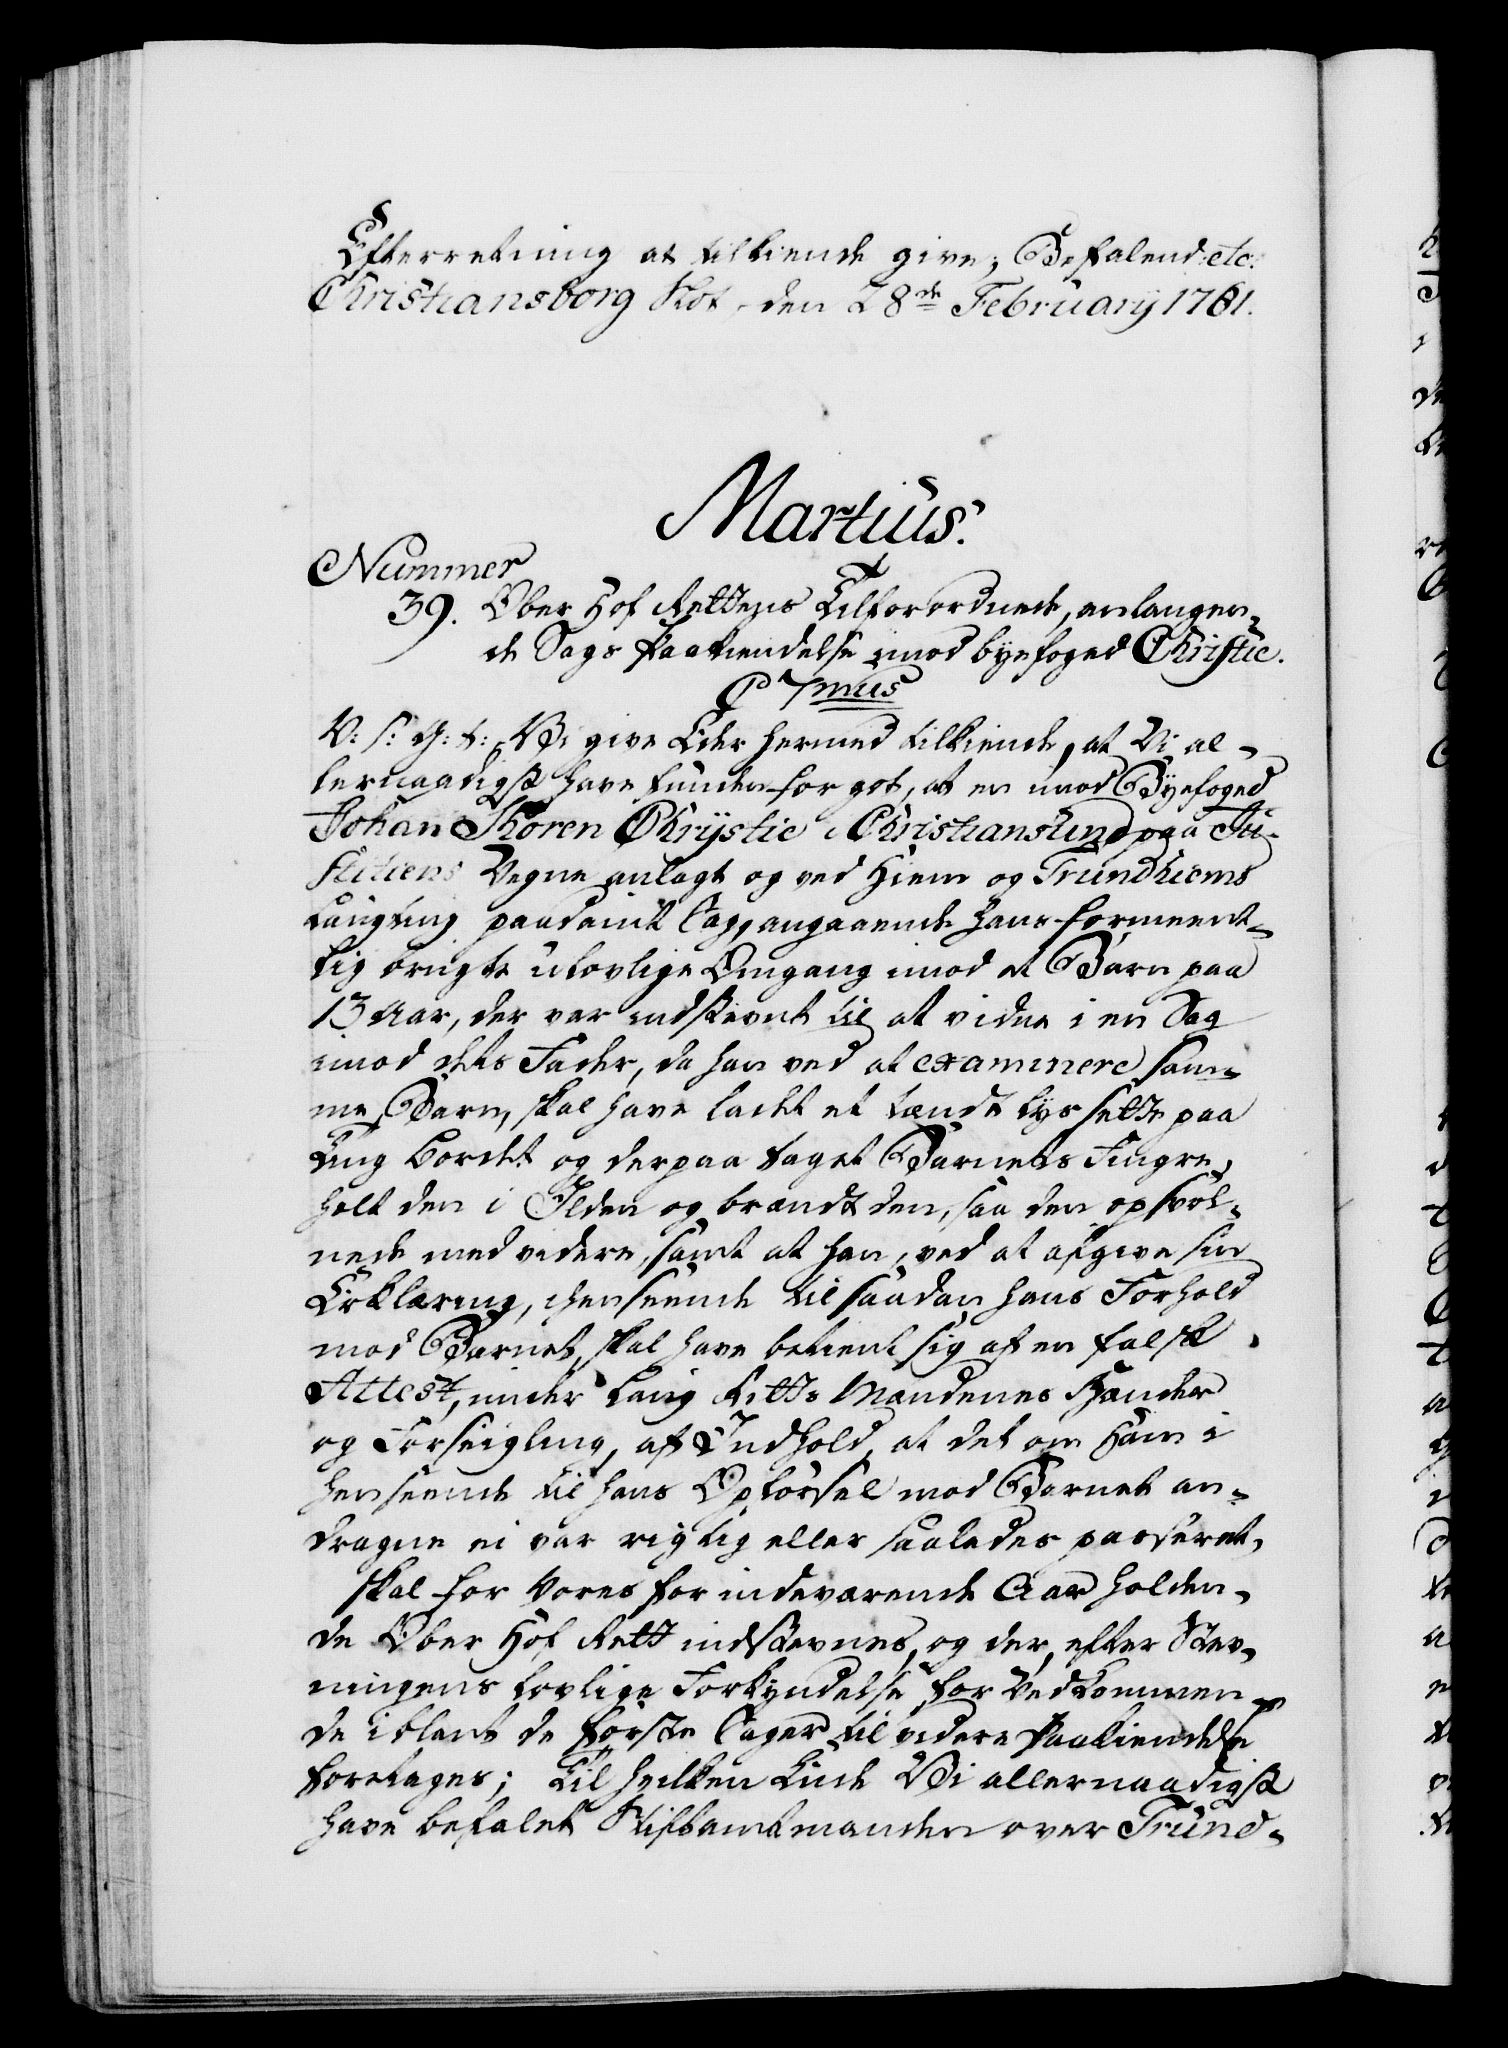 Efterretning at tilkiende give; Befalend: etc:
Christiansborg Slot, den 28de Februarij 1761.
Martius.
Nummer
39. Ober Hof Rettens Tilforordnede, anlangen-
de Sags Paakiendelse imod byefoged Christie.
V: S: G: t: Vi give Eder hermed tilkiende, at Vi al-
lernaadigst have funden for got, at en imod Byefoged
Johan Koren Chrystie i Christiansund paa Ju-
stitiens Vegne anlagt og ved Hiem og Trundhiems
Laugting paadømt Sag, angaaende hans formeent-
lig brugte ulovlige Omgang imod et Barn paa
13 Aar, der var indstevnt til at vidne i en Sag
imod dets Fader, da han ved at examinere sam-
me Barn, skal have ladet et tændt Lys sette paa
Ting Bordet og derpaa taget Barnets Fingre,
holt den i Ilden og brændt den, saa den opsvol-
nede med videre, samt at han, ved at afgive sin
Erklæring, i henseende til saadan hans Forhold
mod Barnet, skal have betient sig af en falsk
Attest, under Laug Retts Mændenes Hænder
og Forseigling, af Indhold, at det om ham i
henseende til hans Opførsel mod Barnet an-
dragne ei var rigtig eller saaledes passeret,
skal for Vores for indeværende Aar holden-
de Ober Hof Rett indstevnes, og der, efter Stev-
ningens lovlige Forkyndelse for Vedkommen-
de iblant de første Sager til videre Paakiendelse
foretages; Til hvilken Ende Vi allernaadigst
have befalet Stiftamtmanden over Trund-